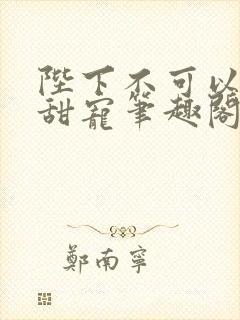 陛下不可以
甜寵筆趣閣
鄭南寧